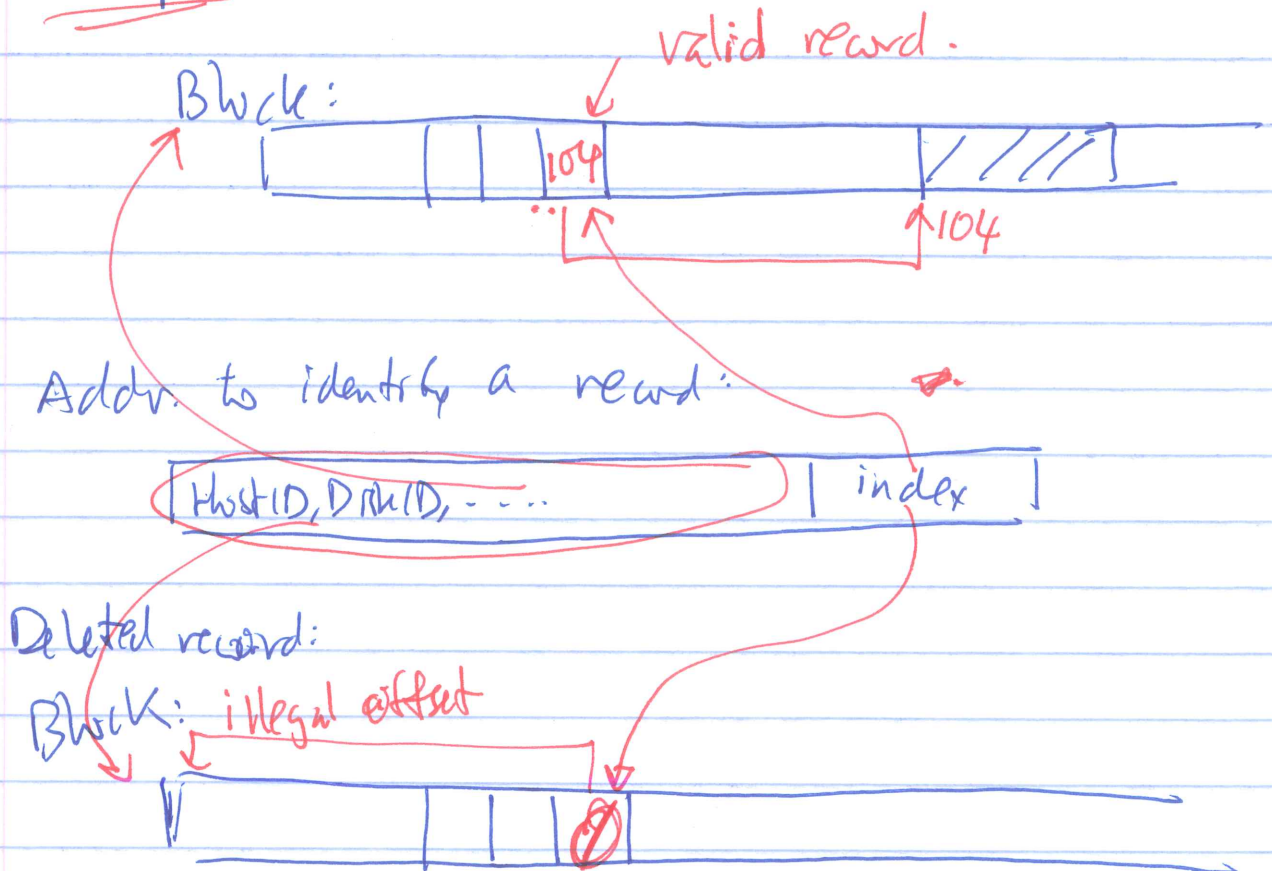 valid record.
Block:
104
104
Addr. to identify a record:
HostID, DiskID, .....
index
Deleted record:
Block: illegal offset
0